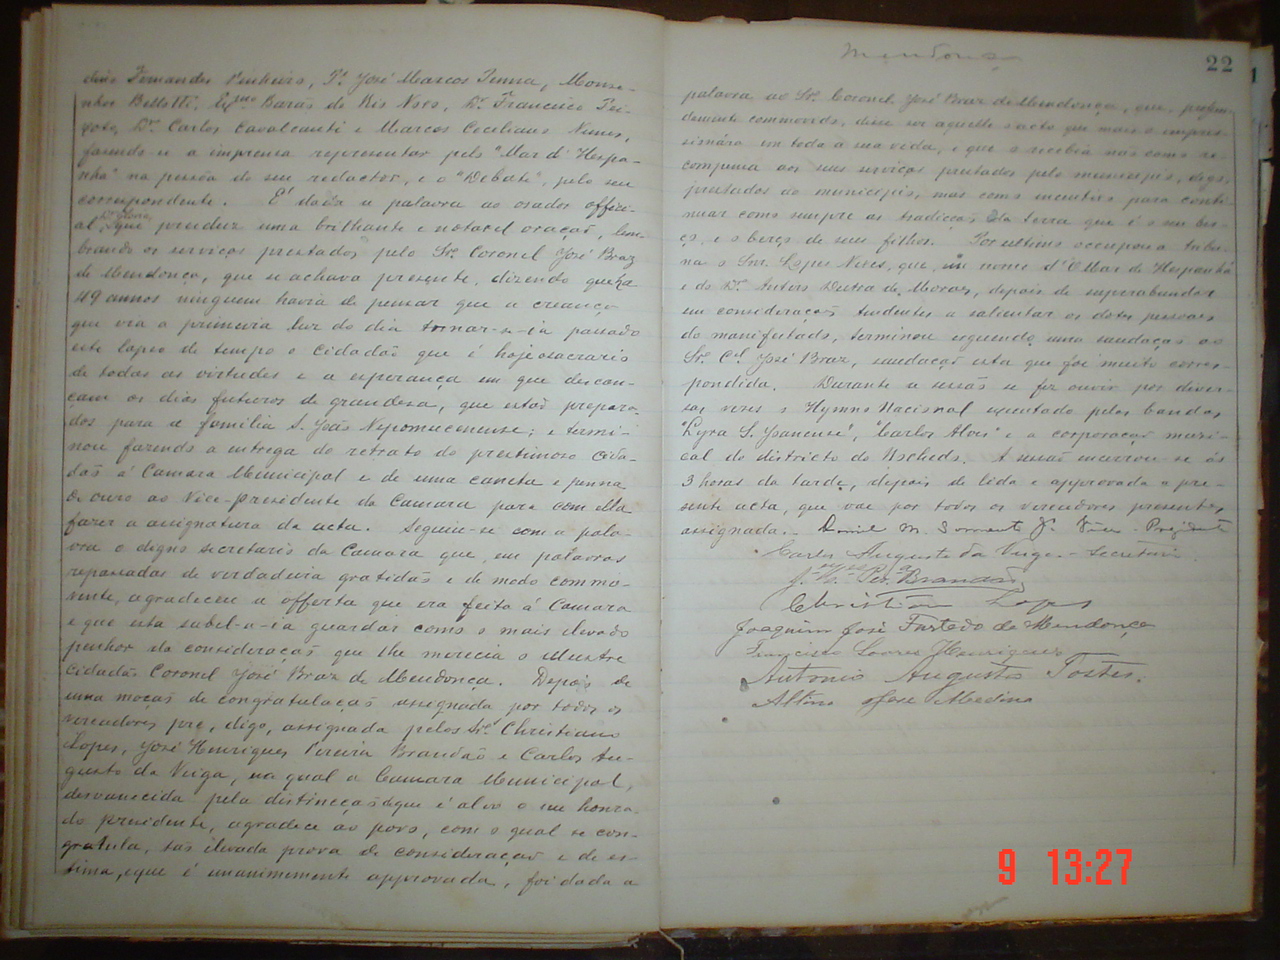 dino Fernandes Pinheiro, Pe. José Marcos Penna, Monse-
nhor Bellotti, Exmo Barão do Rio Novo, Dr. Francisco Pei-
xoto, Dr. Carlos Cavalcanti e Marcos Ceciliano Nunes,
fazendo-se a imprensa representar pelo "Mar d'Hespa-
nha" na pessôa do seu redactor, e o "Debate", pelo seu
correspondente. É dada a palavra ao orador offici-
al, que produz uma brilhante e notavel oração, lem-
brando os serviços prestados pelo Snr. Coronel José Braz
de Mendonça, que se achava presente, dizendo que ha
49 annos ninguem havia de pensar que a creança
que via a primeira luz do dia tornar-se-ia passado
este lapso de tempo o cidadão que é hoje o sacrario
de todas as virtudes e a esperança em que descan-
çam os dias futuros de grandesa, que estão prepara-
dos para a familia S. João Nepomucenense; e termi-
nou fazendo a entrega do retrato do prestimoso cida-
dão á Camara Municipal e de uma caneta e penna
de ouro ao Vice-presidente da Camara para com ella
fazer a assignatura da acta. Seguiu-se com a pala-
vra o digno secretario da Camara que, em palavras
repassadas de verdadeira gratidão e de modo commo-
vente, agradeceu a offerta que era feita á Camara
e que esta sabel-a-ia guardar como o mais elevado
penhor da consideração que lhe merecia o illustre
cidadão Coronel José Braz de Mendonça. Depois de
uma moção de congratulação assignada por todos os
vereadores pre, digo, assignada pelos Snrs. Christiano
Lopes, José Henriques Pereira Brandão e Carlos Au-
gusto da Veiga, na qual a Camara Municipal,
desvanecida pela distincção de que é alvo o seu honra-
do presidente, agradece ao povo, com o qual se con-
gratula, tão elevada prova de consideração e de es-
tima, e que é unanimemente approvada, foi dada a
Mendonça
22
palavra ao Snr. Coronel José Braz de Mendonça, que, profun-
damente commovido, disse ser aquelle o acto que mais o impres-
sionára em toda a sua vida, e que o recebia não como re-
compensa aos seus serviços prestados pelo municipio, digo,
prestados ao municipio, mas como incentivo para conti-
nuar como sempre as tradicções da terra que é o seu ber-
ço, e o berço de seus filhos. Por ultimo occupou a tribu-
na o Snr. Lopes Neves, que, em nome d'O Mar de Hespanha
e do Dr. Dutra de Moraes, depois de superabundar
em considerações tendentes a salientar os dotes pessoaes
do manifestado, terminou erguendo uma saudação ao
Snr. Cel. José Braz, saudação esta que foi muito corres-
pondida. Durante a sessão se fez ouvir por diver-
sas vezes o Hymno Nacional executado pelas bandas
"Lyra S. Joanense", "Carlos Alves" e a corporação musi-
cal do districto do Rochedo. A sessão encerrou-se ás
3 horas da tarde, depois de lida e approvada a pre-
sente acta, que vae por todos os vereadores presentes,
assignada. Daniel M. Sarmento Jr. Vice-Presidente
Carlos Augusto da Veiga - Secretario
J. Per.a Brandão
Christiano Lopes
Joaquim José Furtado de Mendonça
Francisco Soares Henriques
Antonio Augusto Tostes.
José Medina
9 13:27